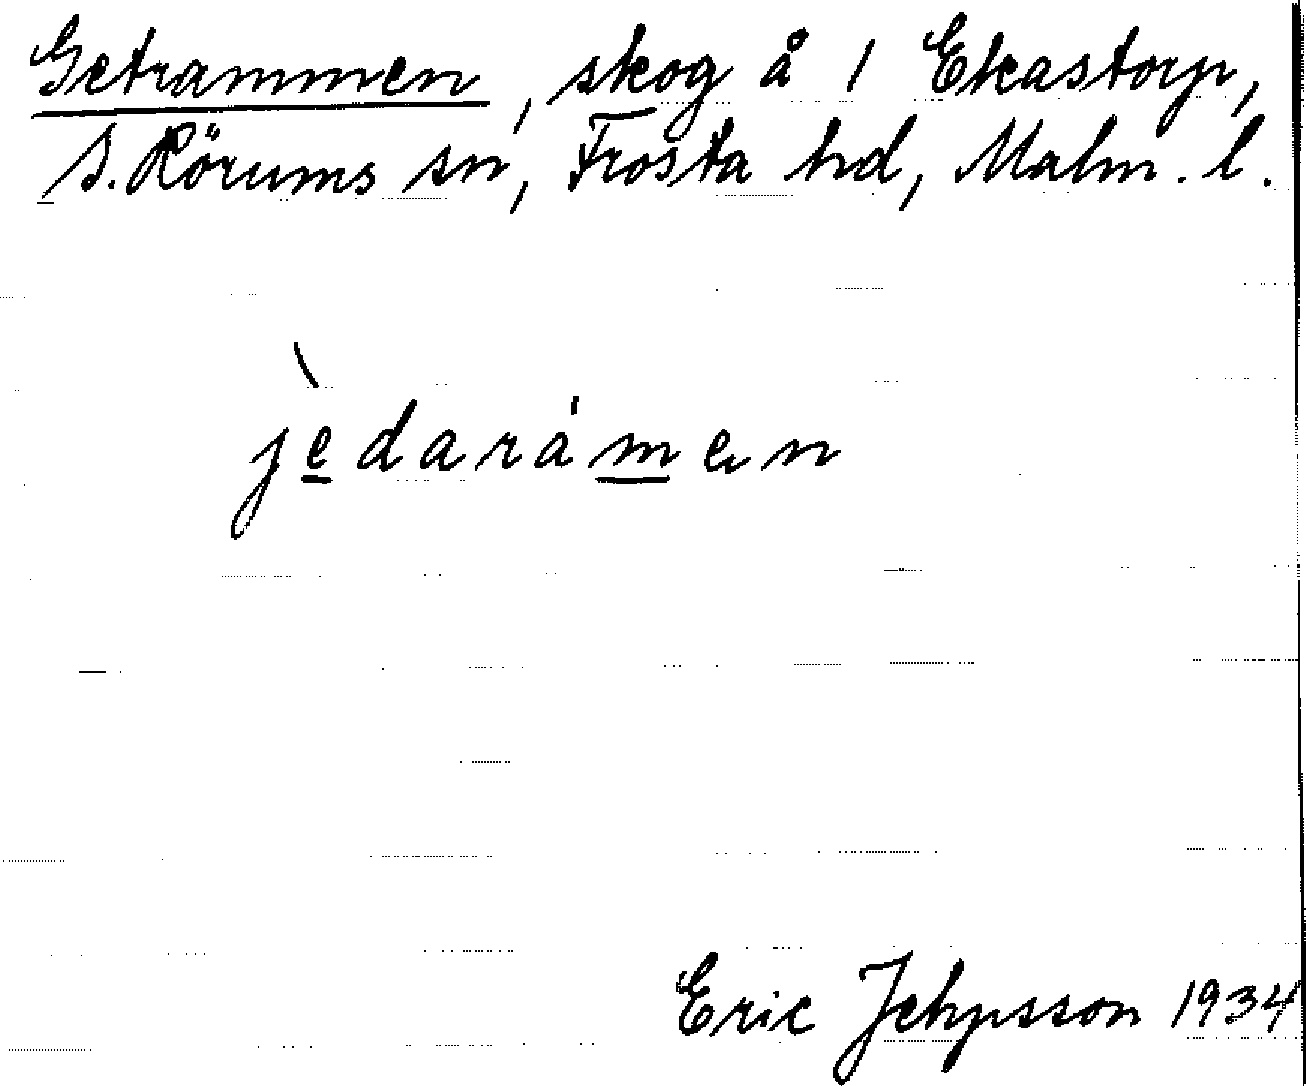 Getrammen, skog å 1 Ekastorp,
S. Rörums sn, Frosta hd, Malm. l.
jèdarámen
Eric Jehpsson 1934